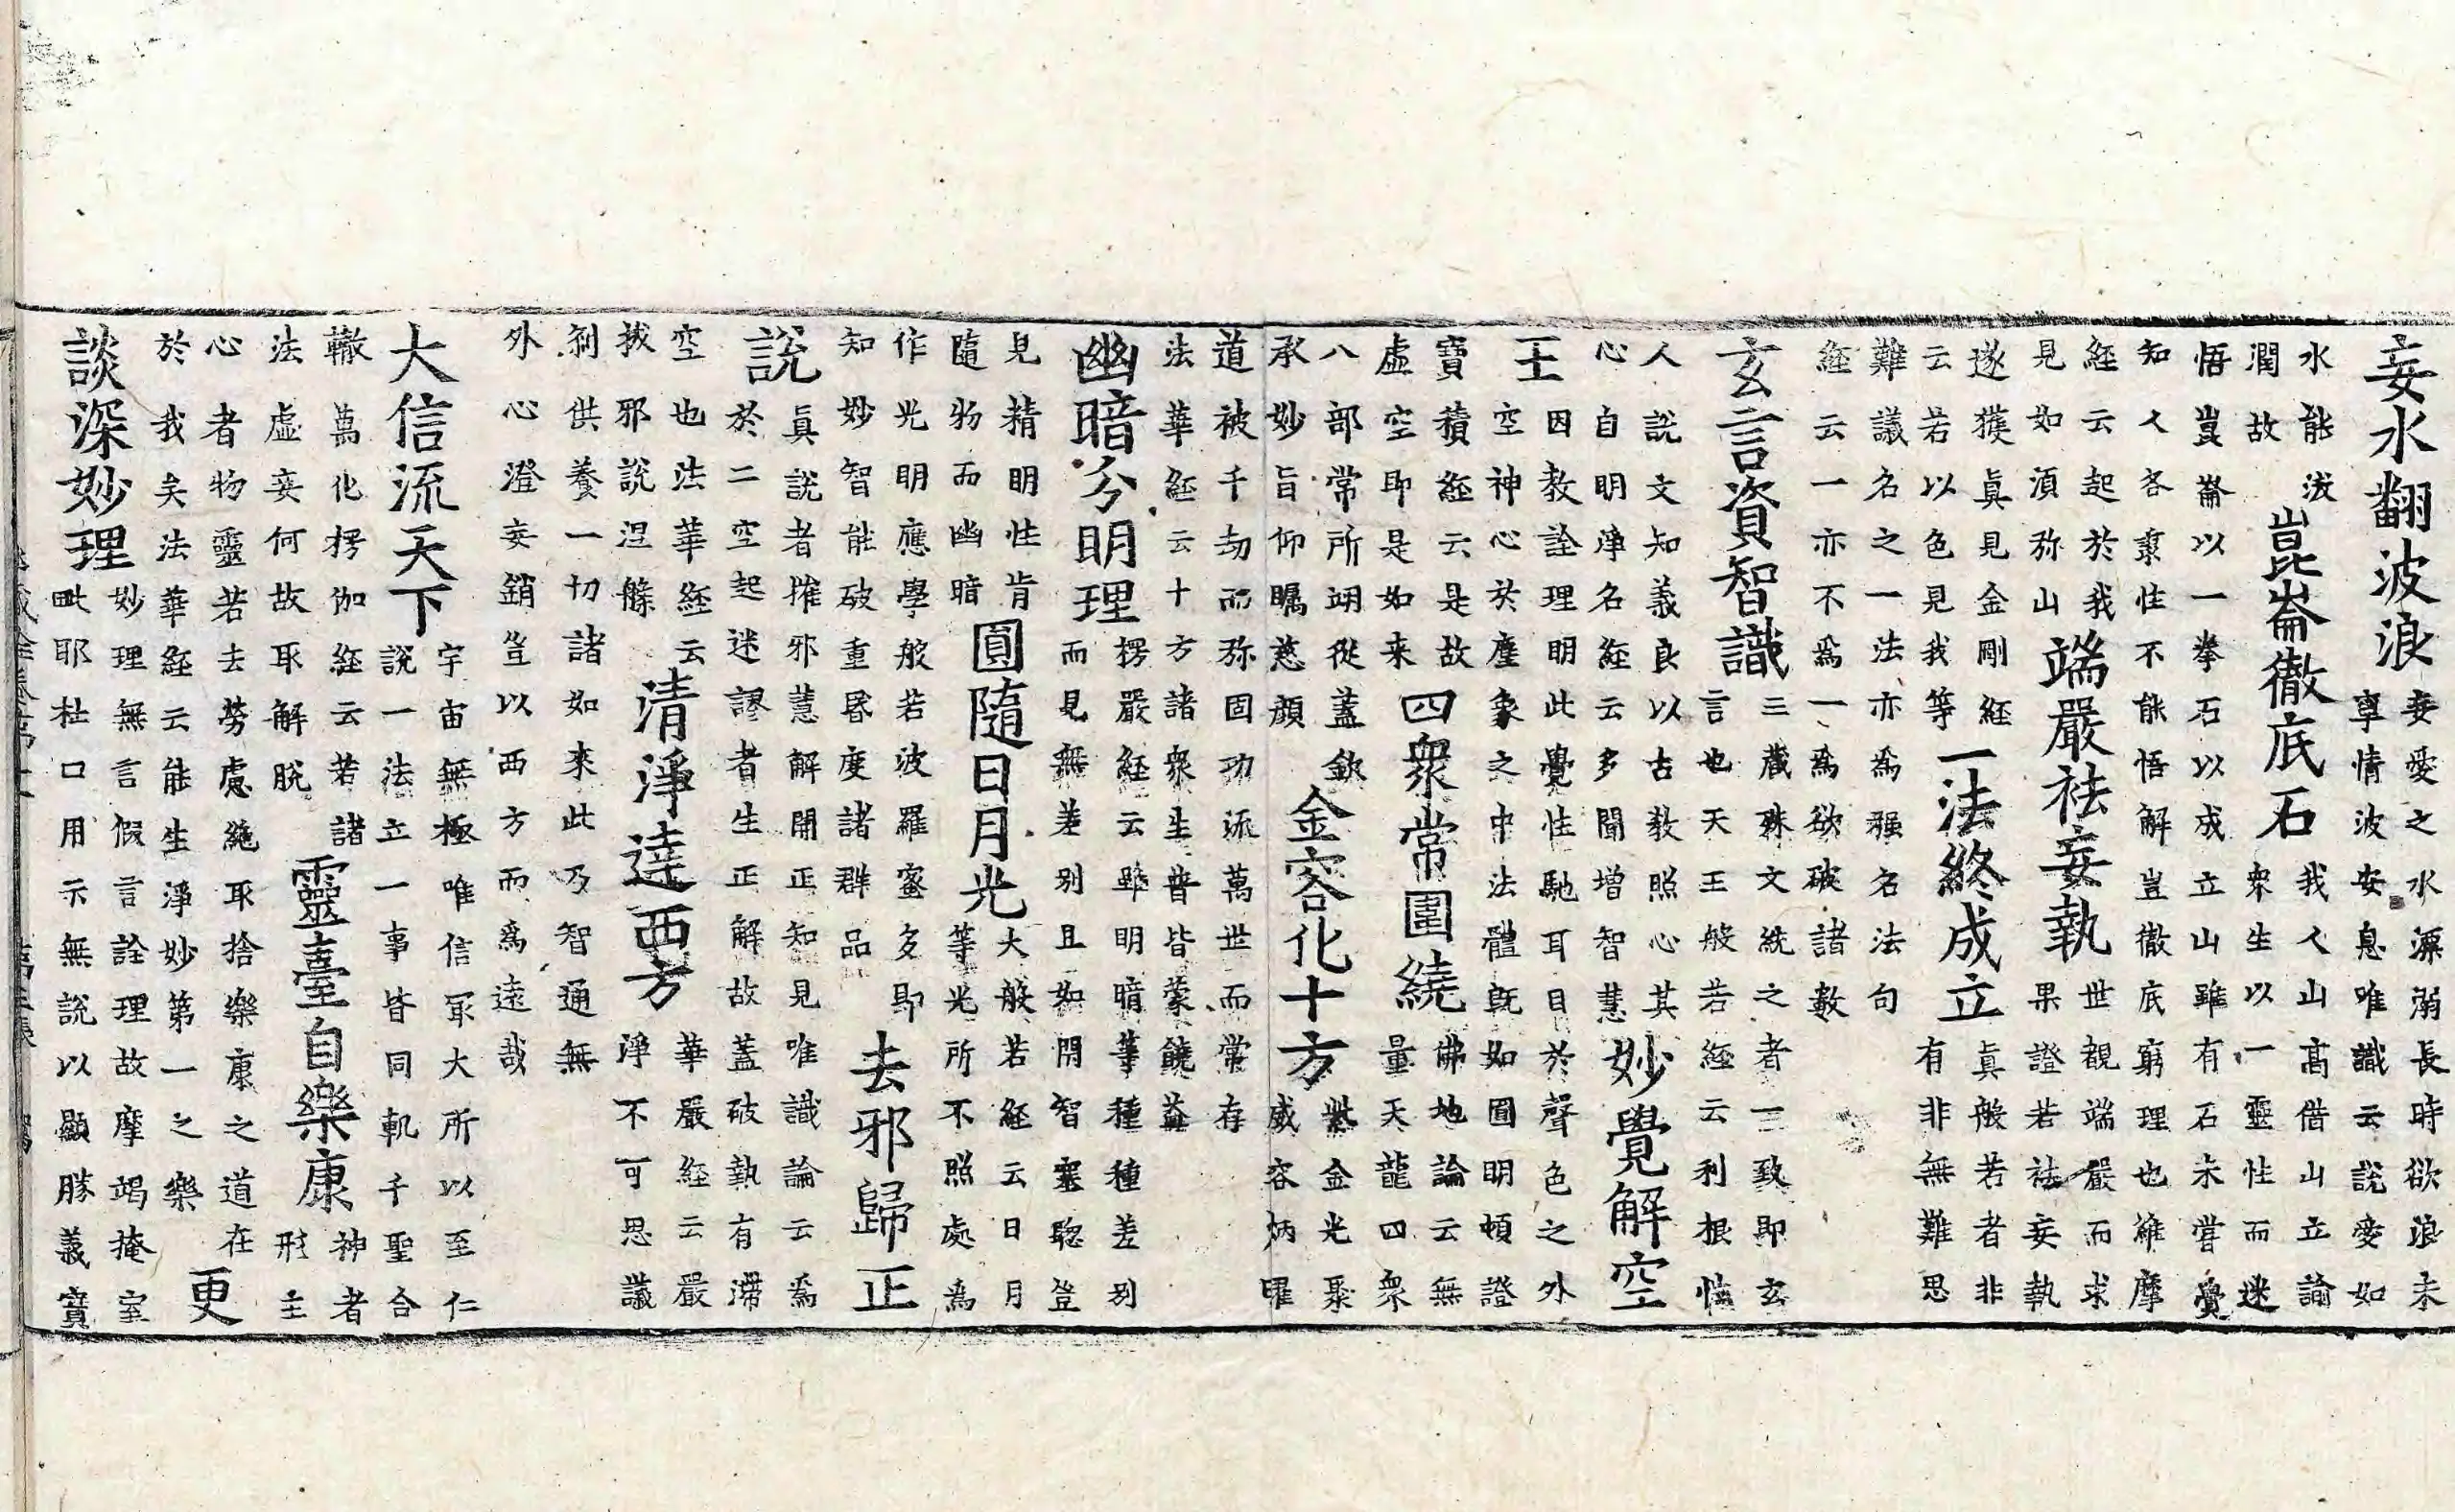 妄水翻波浪
妄愛之水漂溺長時欲浪未
享情波安息唯識云說愛如
水能泼
潤故
崑崙徹底石
我人山髙借山立論
衆生以一靈性而迷
悟豈崙以一拳石以成立山雖有石未嘗覺
知人各禀性不能悟解豈徹底窮理也維摩
經云起於我
見如湏弥山
端嚴袪妄執
世親端嚴而求
果證若袪妄執
遂獲眞見金剛經
云若以色見我等
一法終成立
眞般若者非
有非無難思
難議名之一法亦為强名法句
經云一亦不為一為欲破諸數
玄言資智識
三藏殊文統之者一致即玄
言也天王般若經云利根性
人說文知義良以古教照心其
心自明淨名經云多聞增智慧
妙覺解空
王
因教詮理明此覺性馳耳目於聲色之外
空神心於塵象之中法體旣如圓明頓證
寶積經云是故
虛空即是如来
四衆常圍繞
佛地論云無
量天龍四衆
八部常所翊從蓋欽
承妙旨仰瞩慈顔
金容化十方
紫金光聚
威容炳曜
道被千劫而弥固功流萬世而常存
法華經云十方諸衆生普皆蒙饒益
幽暗分明理
楞嚴經云雖明暗等種種差别
而見無差别且如開智塞聦豈
見精明性肯
隨物而幽暗
圓隨日月光
大般若經云日月
等光所不照處為
作光明應學般若波羅蜜多即
知妙智能破重昬度諸群品
去邪歸正
說
眞說者摧邪慧解開正知見唯識論云為
於二空起迷謬者生正解故蓋破執有滯
空也法華經云
拔邪說涅槃
清淨達西方
華嚴經云嚴
淨不可思議
刹供養一切諸如來此乃智通無
外心澄妄銷豈以西方而為遠哉
大信流天下
宇宙無極唯信冣大所以至仁
說一法立一事皆同軌千聖合
轍萬化楞伽經云若諸
法虛妄何故取解脫
靈臺自樂康
神者
形主
心者物靈若去勞慮絶取捨樂康之道在
於我矣法華經云能生淨妙第一之樂
更
談深妙理
妙理無言假言詮理故摩竭掩室
毗耶杜口用示無說以顯勝義寶